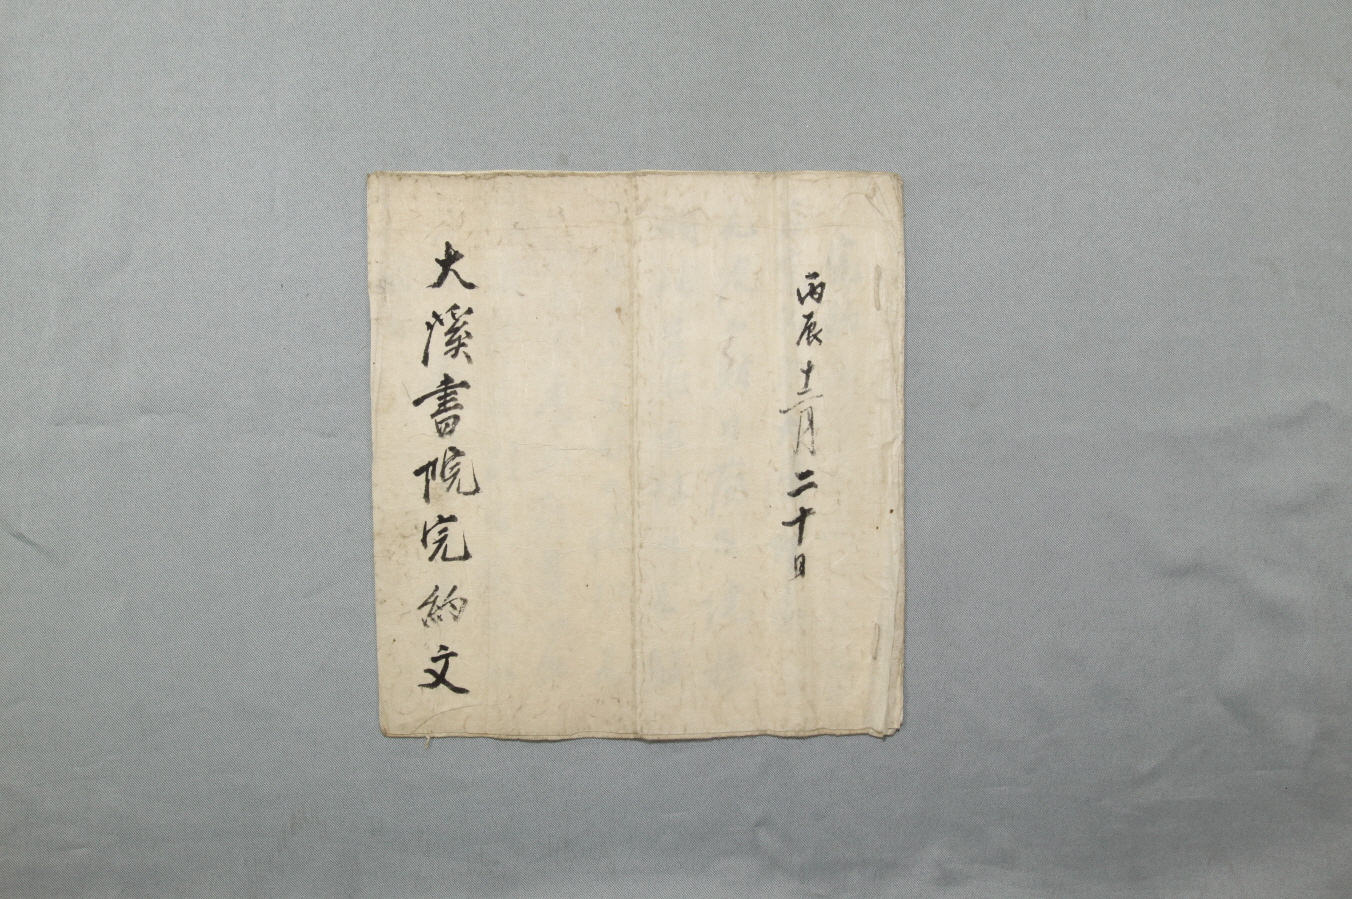 丙辰十二月二十日
大溪書院完約文